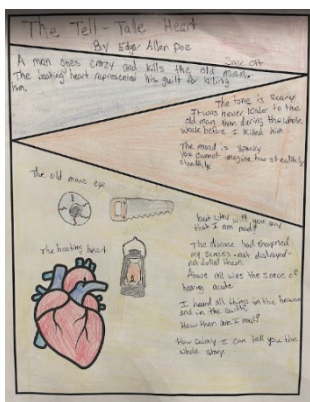 The Tell-Tale Heart
By Edgar Allen Poe
A man goes crazy and kills the old man.
The beating heart represents his guilt for killing
him.
The tone is scary
It was never kinder to the
old man than during the whole
week before I killed him
The mood is spooky
You cannot imagine how stealthily
stealthily
The old mans eye
The beating heart
but why will you say
that I am mad?
The disease had sharpened
my senses - not destroyed -
not dulled them.
Above all was the sence of
hearing acute
I heard all things in the heaven
and in the earth
How then am I mad?
How calmly I can tell you the
whole story